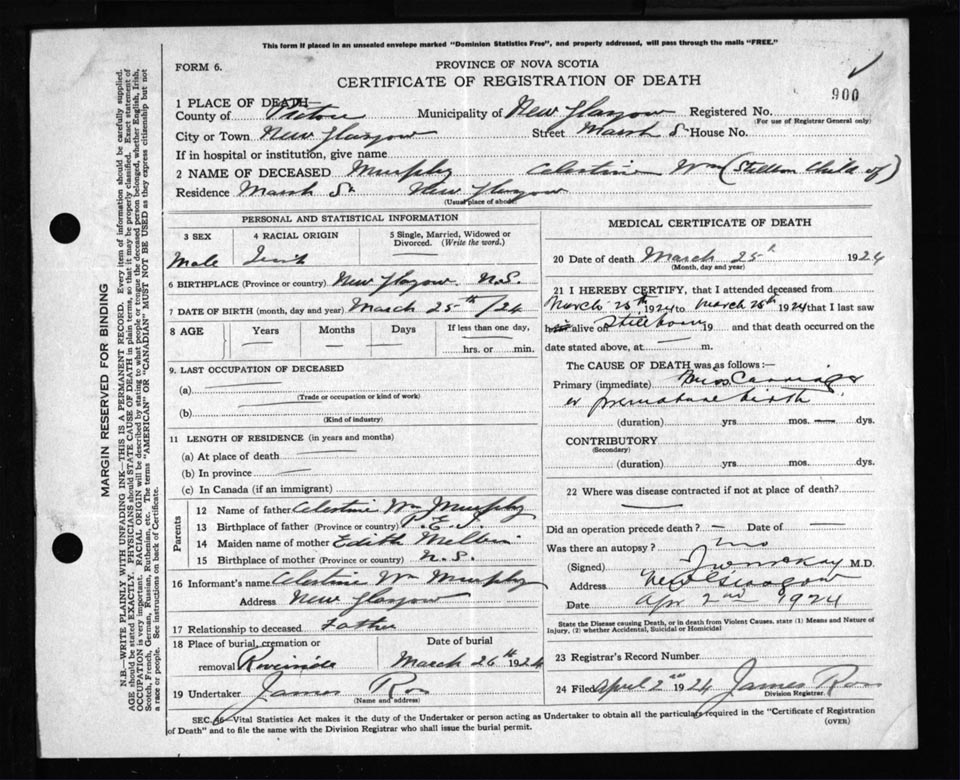 This form if placed in an unsealed envelope marked "Dominion Statistics Free", and properly addressed, will pass through the mails "FREE."
FORM 6.
PROVINCE OF NOVA SCOTIA
CERTIFICATE OF REGISTRATION OF DEATH
900
1 PLACE OF DEATH—
County of Pictou Municipality of New Glasgow Registered No.
(For use of Registrar General only)
City or Town New Glasgow Street Marsh St House No.
If in hospital or institution, give name
2 NAME OF DECEASED Murphy Celestine Wm (Stillborn Child of)
Residence Marsh St New Glasgow
(Usual place of abode)
PERSONAL AND STATISTICAL INFORMATION
3 SEX 4 RACIAL ORIGIN 5 Single, Married, Widowed or Divorced. (Write the word.)
Male
6 BIRTHPLACE (Province or country) New Glasgow N.S.
7 DATE OF BIRTH (month, day and year) March 25th /24
8 AGE Years Months Days If less than one day,
hrs. or min.
9. LAST OCCUPATION OF DECEASED
(a)
(Trade or occupation or kind of work)
(b)
(Kind of industry)
11 LENGTH OF RESIDENCE (in years and months)
(a) At place of death
(b) In province
(c) In Canada (if an immigrant)
Parents
12 Name of father Celestine Wm Murphy
13 Birthplace of father (Province or country) P.E.I.
14 Maiden name of mother Edith
15 Birthplace of mother (Province or Country) N.S.
16 Informant's name Celestine Wm Murphy
Address New Glasgow
17 Relationship to deceased Father
18 Place of burial, cremation or removal Riverside
Date of burial
March 26th 1924
19 Undertaker James Ross
(Name and address)
MEDICAL CERTIFICATE OF DEATH
20 Date of death March 25th 1924
(Month, day and year)
21 I HEREBY CERTIFY, that I attended deceased from
March 25th 1924 to March 25th 1924 that I last saw
him alive on Stillborn 19 and that death occurred on the
date stated above, at m.
The CAUSE OF DEATH was as follows:—
Primary (immediate) Miscarriage
or premature birth
(duration) yrs mos. dys.
CONTRIBUTORY
(Secondary)
(duration) yrs mos. dys.
22 Where was disease contracted if not at place of death?
Did an operation precede death? Date of
Was there an autopsy? no
(Signed) M.D.
Address New Glasgow
Date Apr 2nd 1924
State the Disease causing Death, or in death from Violent Causes, state (1) Means and Nature of
Injury, (2) whether Accidental, Suicidal or Homicidal
23 Registrar's Record Number
24 Filed April 2nd 1924 James Ross
Division Registrar.
SEC. 46—Vital Statistics Act makes it the duty of the Undertaker or person acting as Undertaker to obtain all the particulars required in the "Certificate of Registration
of Death" and to file the same with the Division Registrar who shall issue the burial permit.
(OVER)
MARGIN RESERVED FOR BINDING
N.B.—WRITE PLAINLY WITH UNFADING INK—THIS IS A PERMANENT RECORD. Every item of information should be carefully supplied.
AGE should be stated EXACTLY. PHYSICIANS should STATE CAUSE OF DEATH in plain terms, so that it may be properly classified. Exact statement of
OCCUPATION is very important. RACIAL ORIGIN will be described by stating to what people or tongue the deceased person belonged, whether English, Irish,
Scotch, French, German, Russian, Ruthenian, etc. The terms "AMERICAN" OR "CANADIAN" MUST NOT BE USED as they express citizenship but not
a race or people. See instructions on back of Certificate.